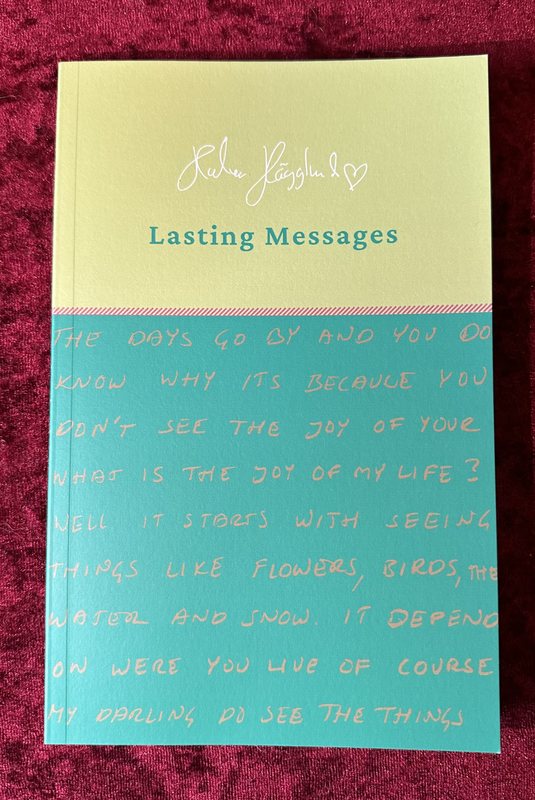 Hägglund
Lasting Messages
THE DAYS GO BY AND YOU DO
KNOW WHY ITS BECAUCE YOU
DON'T SEE THE JOY OF YOUR
WHAT IS THE JOY OF MY LIFE?
WELL IT STARTS WITH SEEING
THINGS LIKE FLOWERS, BIRDS, THE
WATER AND SNOW. IT DEPEND
ON WERE YOU LIVE OF COURSE
MY DARLING DO SEE THE THINGS